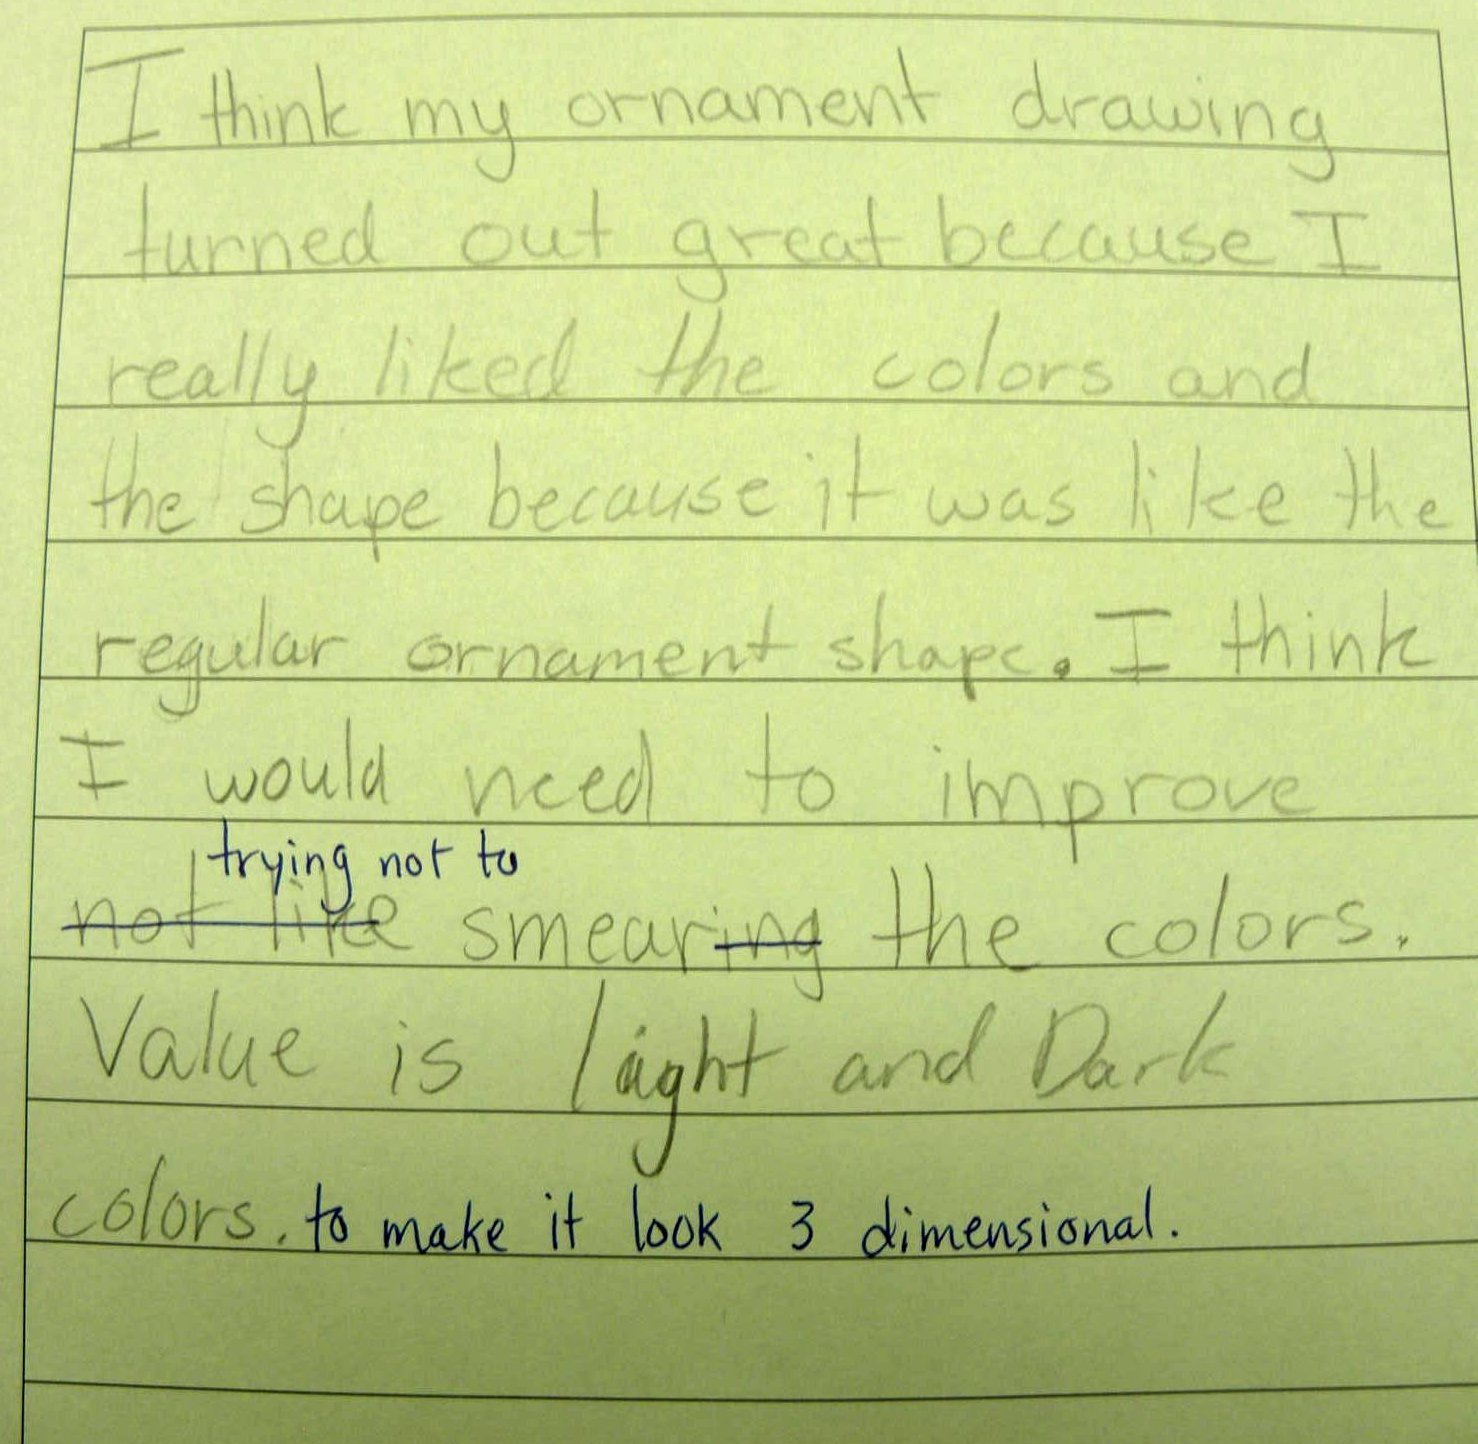 I think my ornament drawing
turned out great because I
really liked the colors and
the shape because it was like the
regular ornament shape. I think
I would need to improve
trying not to
not like smearing the colors.
Value is light and Dark
colors. to make it look 3 dimensional.